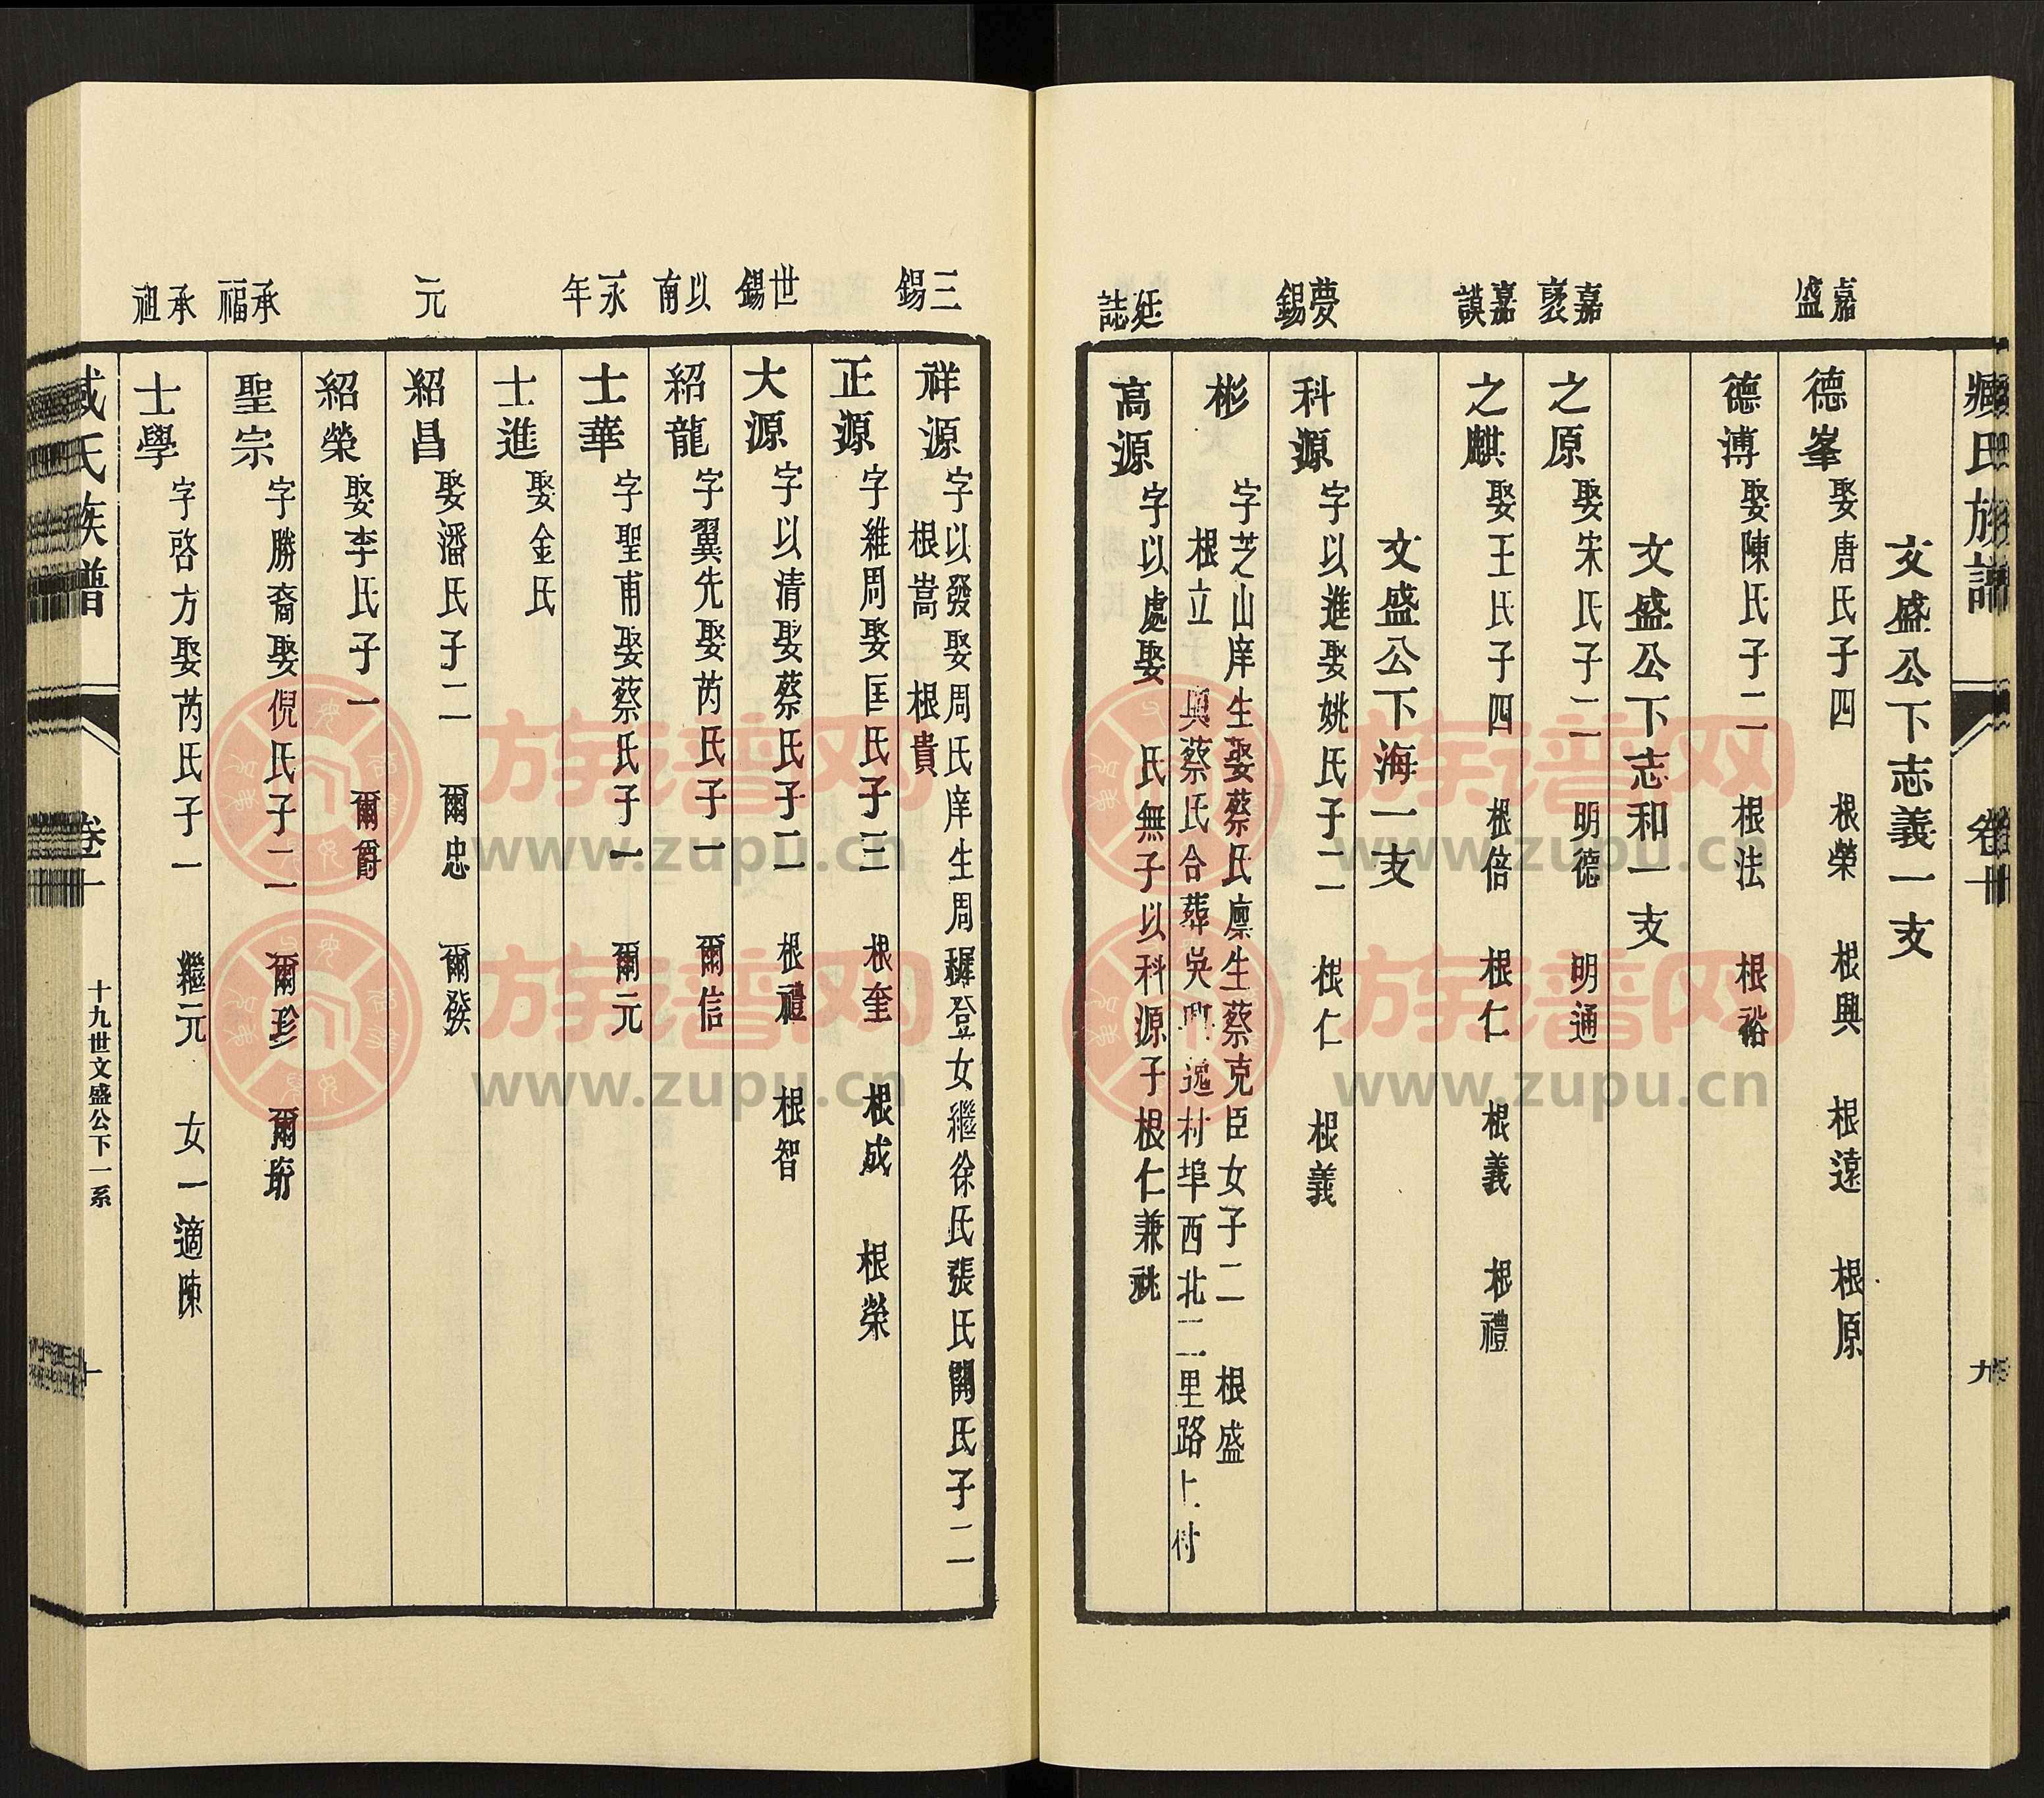 臧氏族譜 卷十 九
文盛公下志義一支
嘉盛
德峯 娶唐氏子四 根榮 根興 根遠 根原
德溥 娶陳氏子二 根法 根裕
文盛公下志和一支
嘉裘
之原 娶宋氏子二 明德 明通
嘉謨
之麒 娶王氏子四 根倍 根仁 根義 根禮
文盛公下海一支
夢錫
科源 字以進娶姚氏子二 根仁 根義
彬 字芝山庠生娶蔡氏廪生蔡克臣女子二 根盛
根立 與蔡氏合葬吳興邈村埠西北二里路上村
廷誌
高源 字以處娶 氏無子以科源子根仁兼祧
三錫
祥源 字以發娶周氏庠生周穉登女繼徐氏張氏開氏子二
根嵩 根貴
正源 字維周娶匡氏子三 根奎 根成 根榮
世錫
大源 字以清娶蔡氏子二 根禮 根智
以南
紹龍 字翼先娶芮氏子一 爾信
永年
士華 字聖甫娶蔡氏子一 爾元
士進 娶金氏
元
紹昌 娶潘氏子二 爾忠 爾發
紹榮 娶李氏子一 爾爵
承福
聖宗 字勝裔娶倪氏子二 爾珍 爾珩
承祖
士學 字啓方娶芮氏子一 繼元 女一適陳
臧氏族譜 卷十 十九世文盛公下一系 十
族谱网
www.zupu.cn
族谱网
www.zupu.cn
族谱网
www.zupu.cn
族谱网
www.zupu.cn